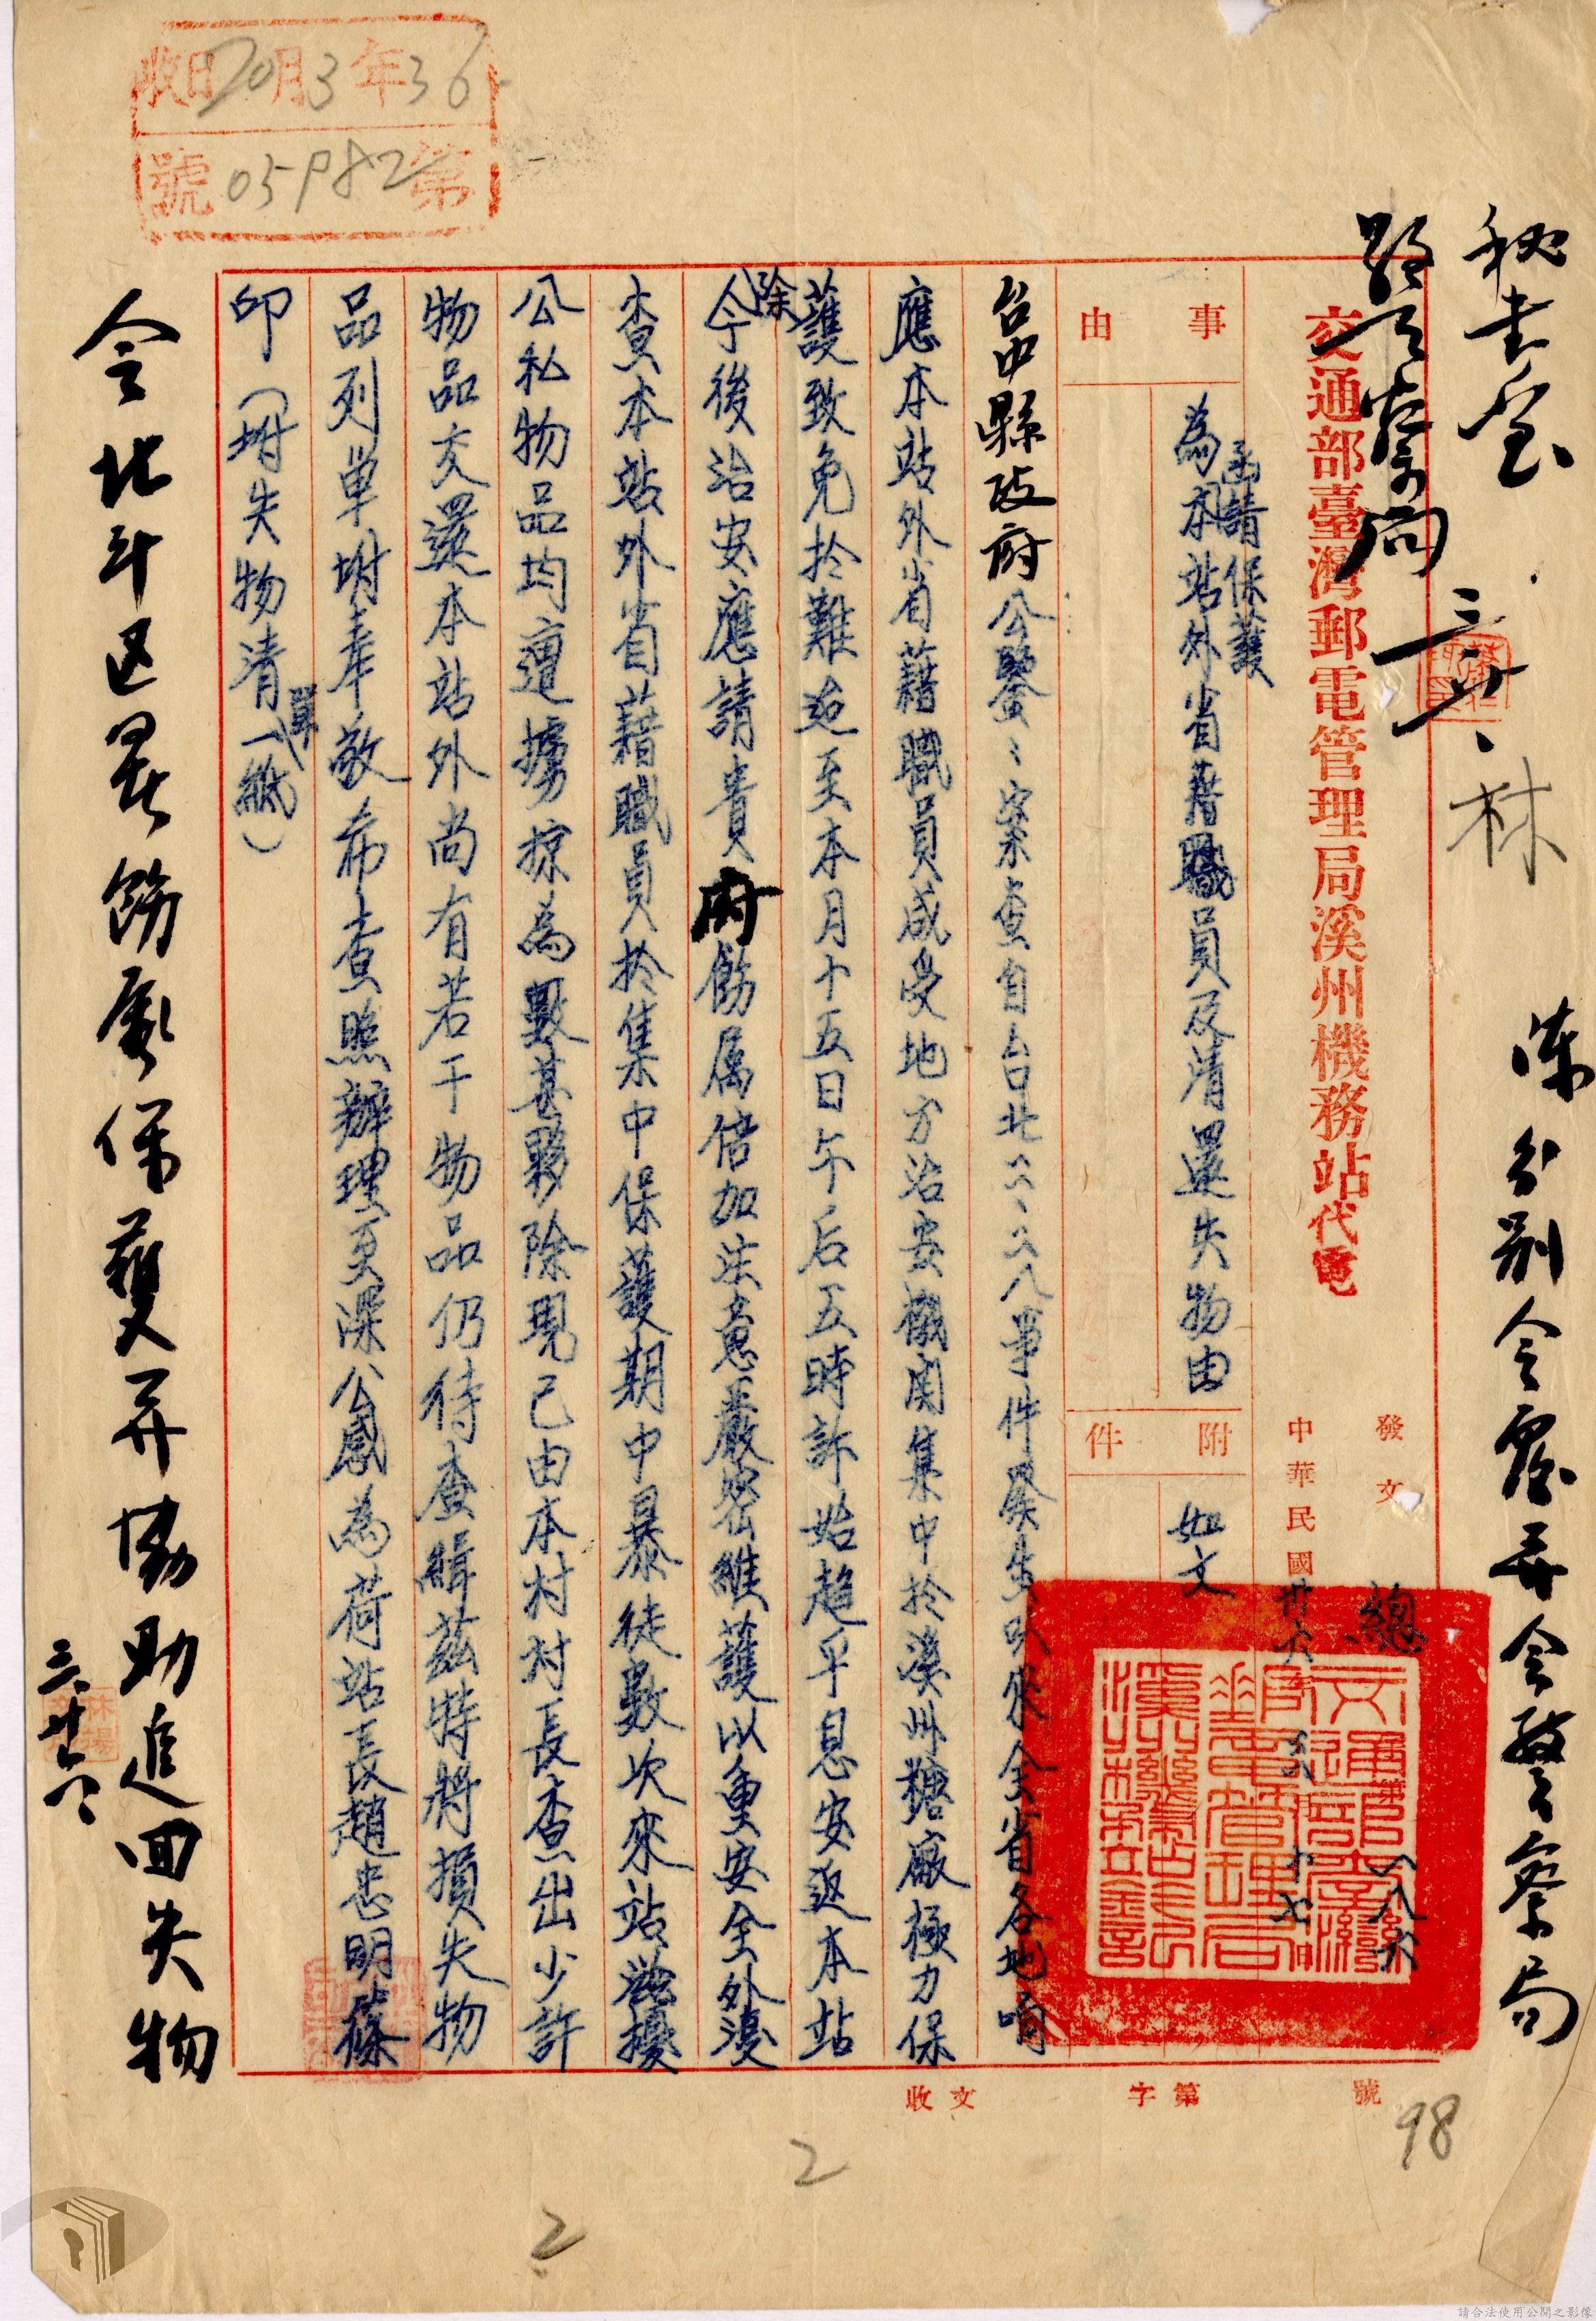 收日20月3年36
號05982第
秘書室
警察局
林
陳分別令飭並令警察局
交通部臺灣郵電管理局溪州機務站代電
事由
函請保護
為本站外省籍職員及清還失物由
附件
如文
發文
總
中華民國卅六
台中縣政府公鑒：案查自台北二、二八事件發生以來全省各地响
應本站外省籍職員咸受地方治安機關集中於溪州糖廠極力保
護致免於難迨至本月十五日午后五時許始趨平息安返本站
除今後治安應請貴府飭屬倍加注意嚴密維護以重安全外復
查本站外省藉職員於集中保護期中暴徒數次來站滋擾
公私物品均遭擄掠為數甚夥除現已由本村村長查出少許
物品交還本站外尚有若干物品仍待查緝茲特將損失物
品列单坿奉敬希查照辦理更深公感為荷站長趙忠明篠
印（坿失物清單一紙）
令北斗区署飭屬保護並協助追回失物
三、廿六、
收文
字第
號
98
2
2
請合法使用公開之影像